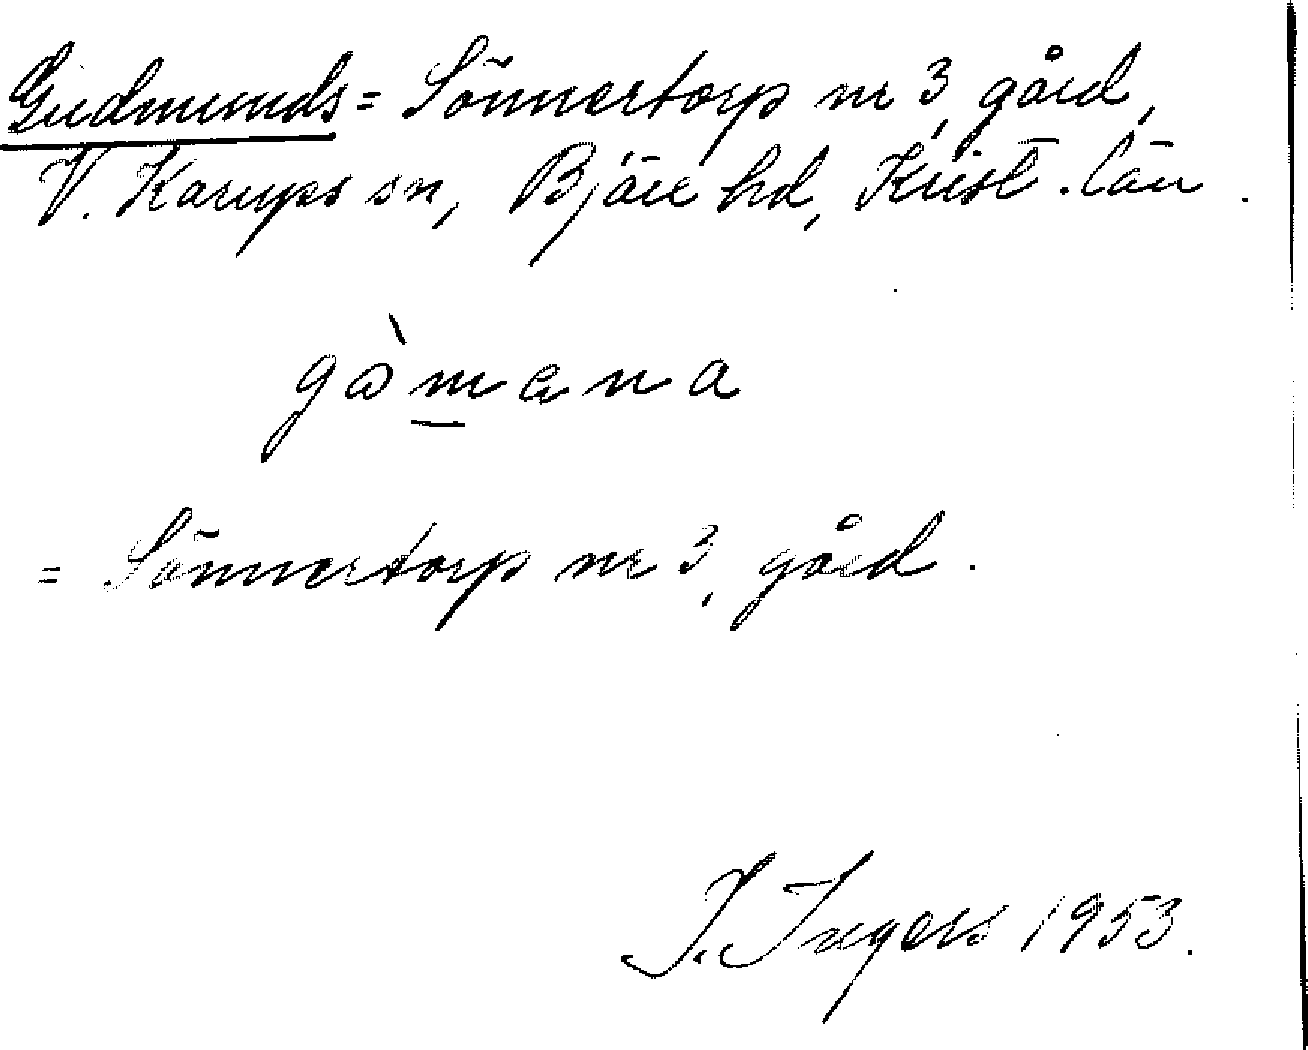 Gudmunds = Sönnertorp nr 3, gård,
V. Karups sn, Bjäre hd, Krist. län.
gòmana
= Sönnertorp nr 3, gård.
I. Ingers 1953.